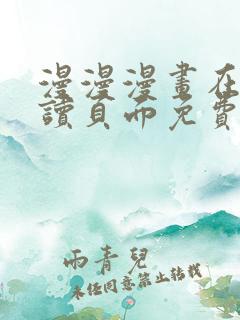 漫漫漫畫在
讀頁面免費
雨青兒
未经同意禁止转载